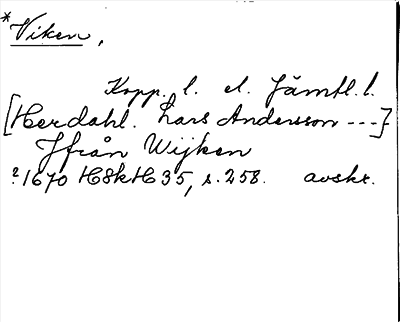 *Viken,
Kopp. l. el. Jämtl. l.
[Herdahl. Lars Andersson ---]
Ifrån Wijken
?1670 HSkH 35, s. 258. avskr.